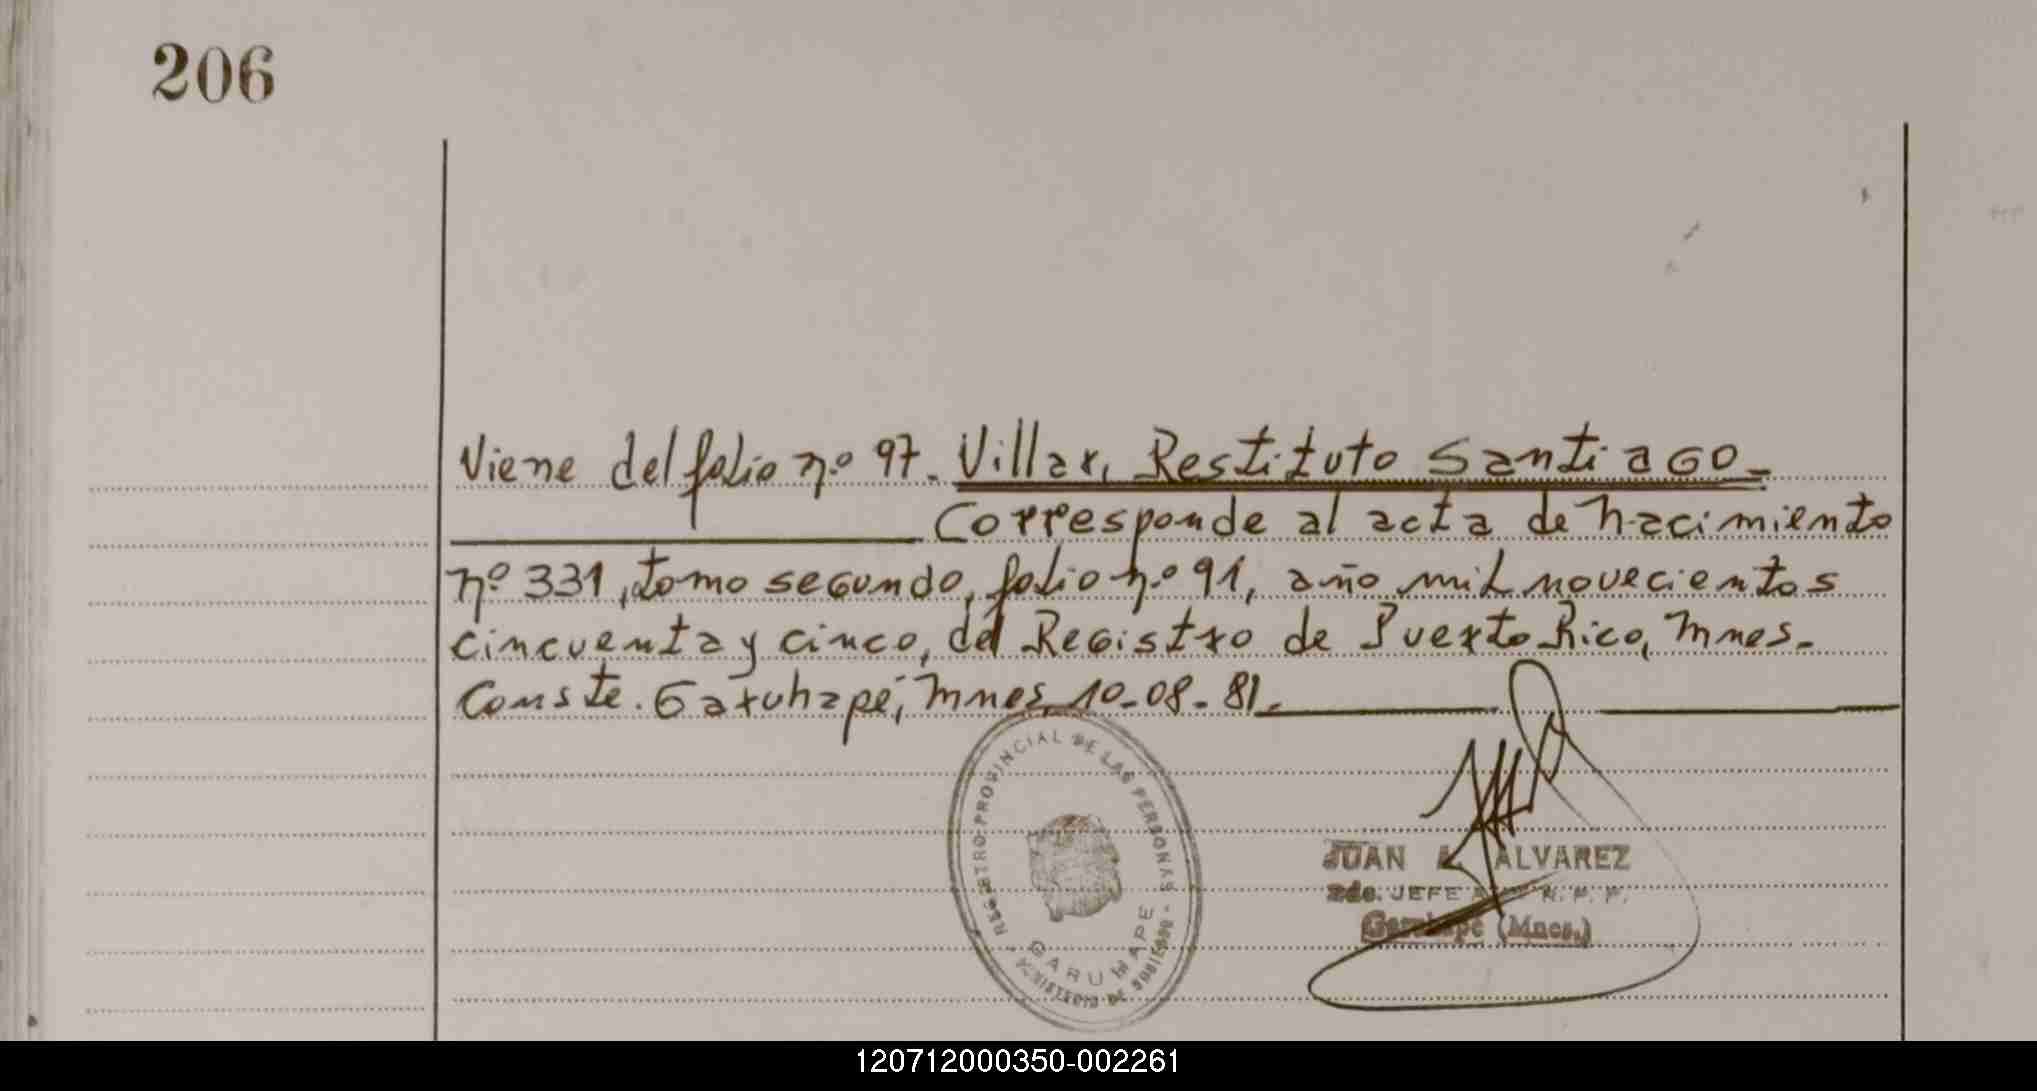 206
Viene del folio nº 97. Villar, Restituto Santiago.
Corresponde al acta de nacimiento
nº 331, tomo segundo, folio nº 91, año mil novecientos
cincuenta y cinco, del Registro de Puerto Rico, Mnes.
Conste. Garuhapé, Mnes, 10-08-81.
REGISTRO PROVINCIAL DE LAS PERSONAS
GARUHAPE
MINISTERIO DE GOBIERNO
JUAN A. ALVAREZ
2do. JEFE R. P. P.
Garuhape (Mnes.)
120712000350-002261